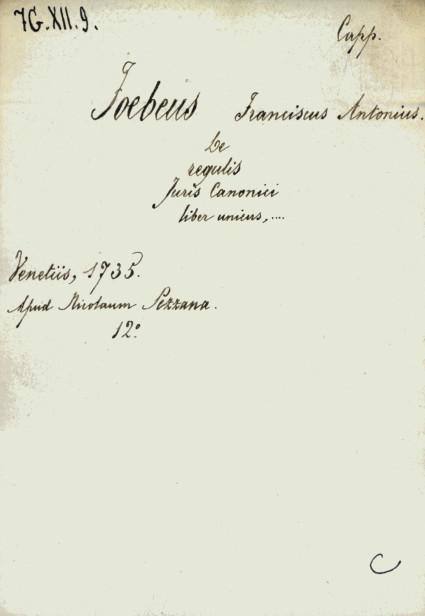 7G.XII.9.
Capp.
Foebeus Franciscus Antonius.
De
regulis
Juris Canonici
liber unicus, ....
Venetiis, 1735.
Apud Nicolaum Pezzana.
12°
C